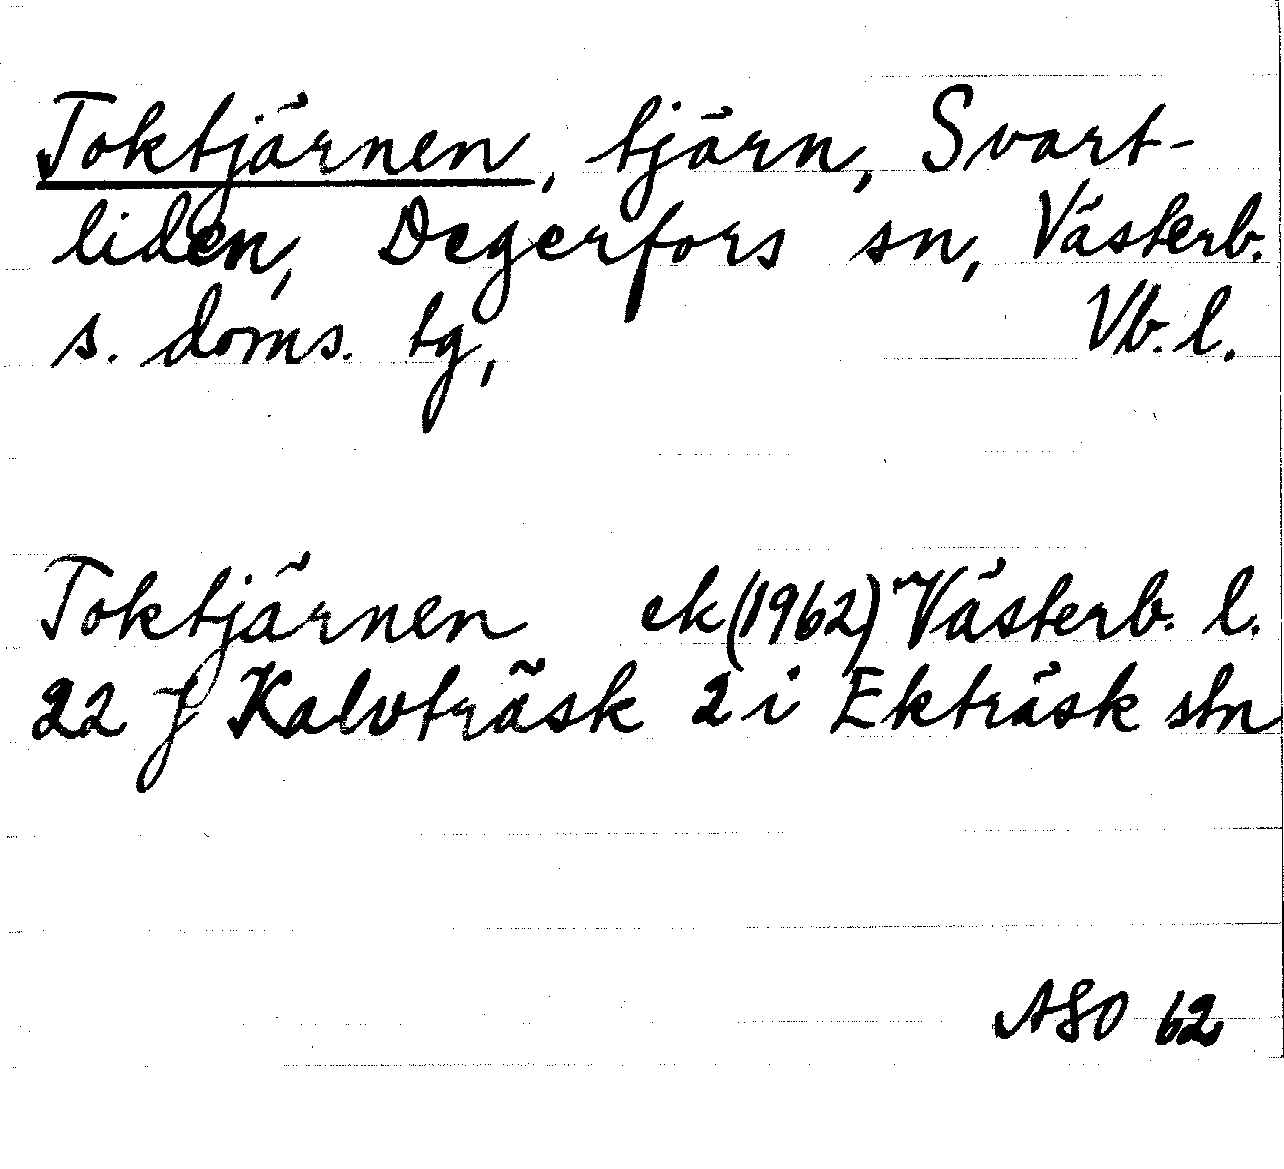 Toktjärnen, tjärn, Svart-
liden, Degerfors sn, Västerb.
s. doms. tg, Vb. l.
Toktjärnen ek (1962) Västerb. l.
22 J Kalvträsk 2 i Ekträsk stn
ASO 62